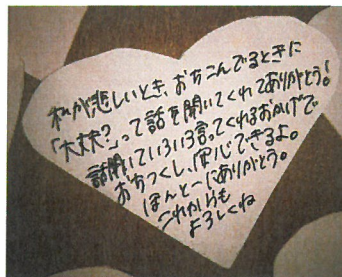 私が悲しいとき、おちこんでるときに
「大丈夫？」って話を聞いてくれてありがとう！
話聞いていろいろ言ってくれるおかげで。
おちつくし、安心できるよ。
ほんとーにありがとう。
これからも
よろしくね